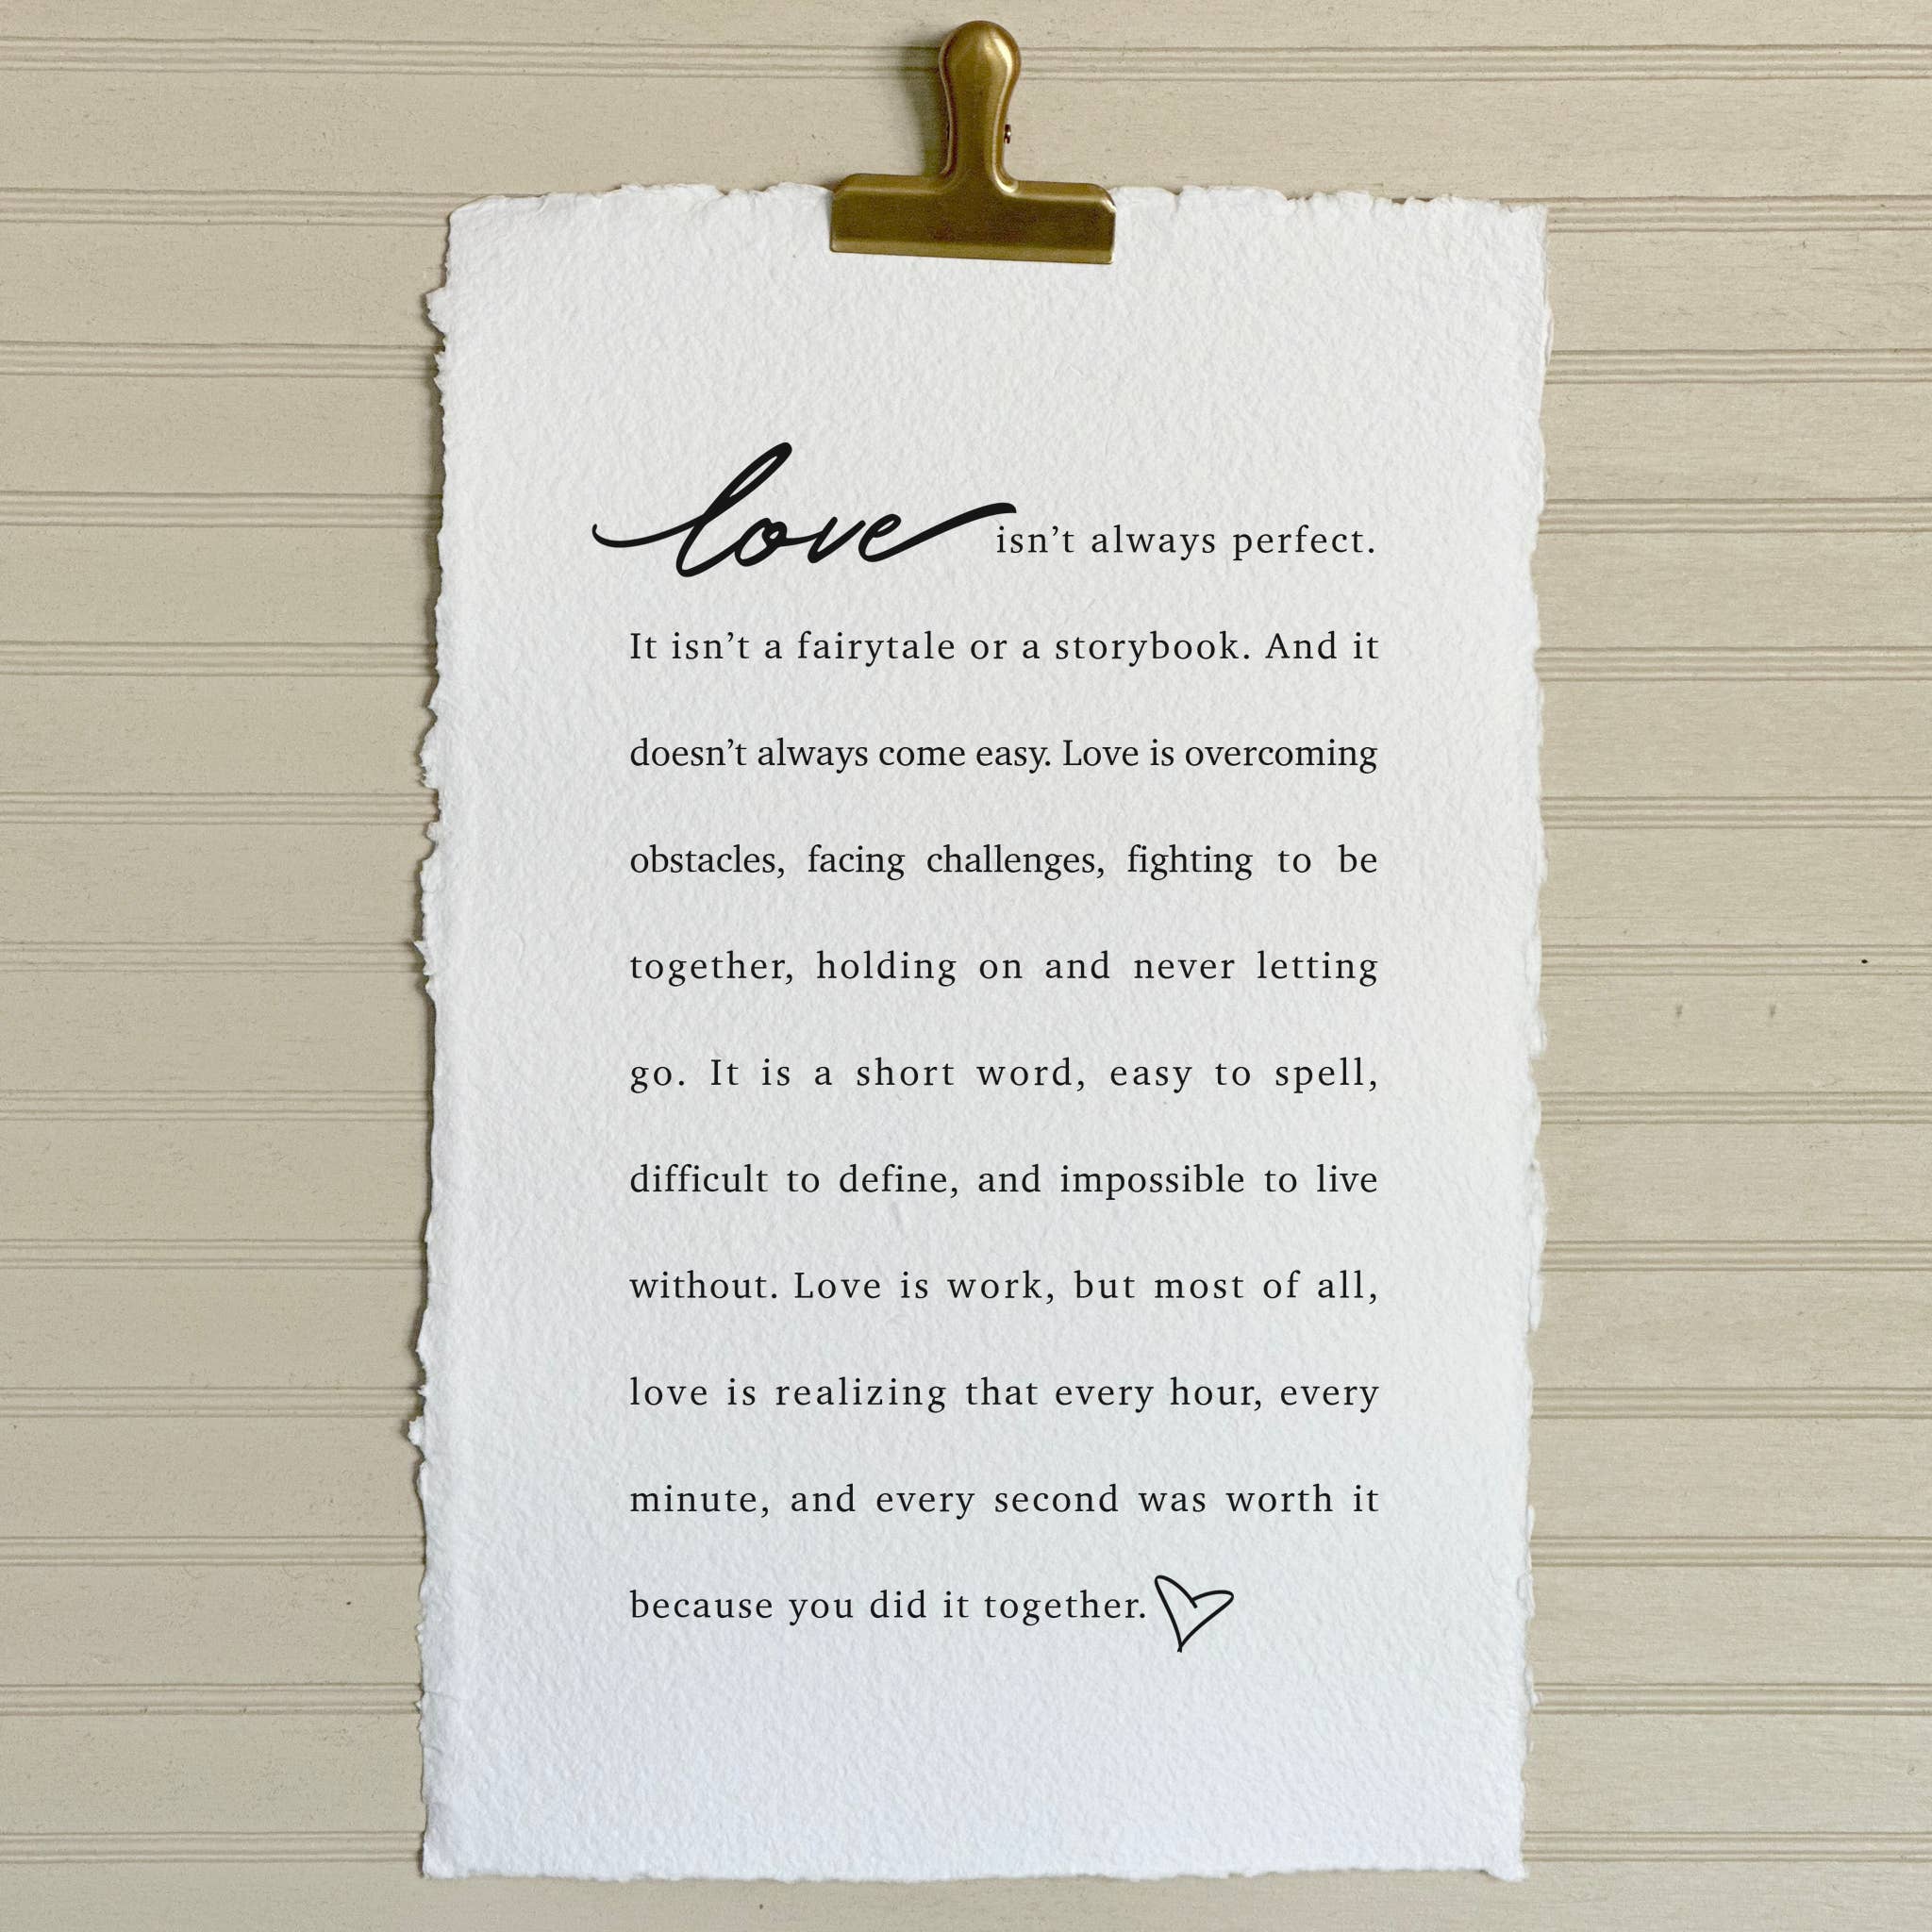 love isn’t always perfect.
It isn’t a fairytale or a storybook. And it
doesn’t always come easy. Love is overcoming
obstacles, facing challenges, fighting to be
together, holding on and never letting
go. It is a short word, easy to spell,
difficult to define, and impossible to live
without. Love is work, but most of all,
love is realizing that every hour, every
minute, and every second was worth it
because you did it together.